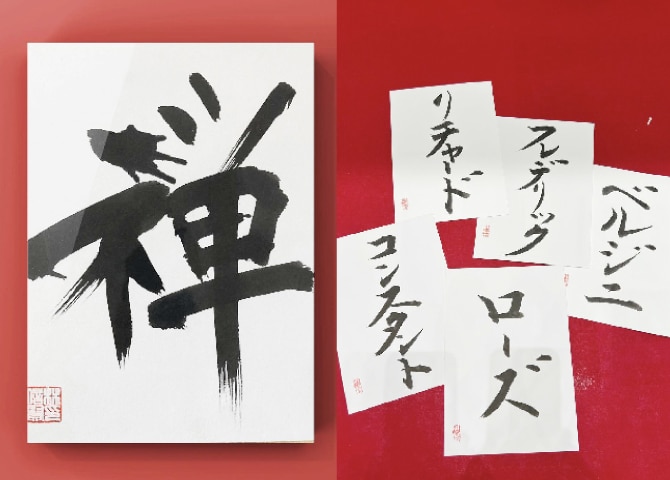 禅
リチャード
フレデリック
ベルジニ
コンスタント
ローズ